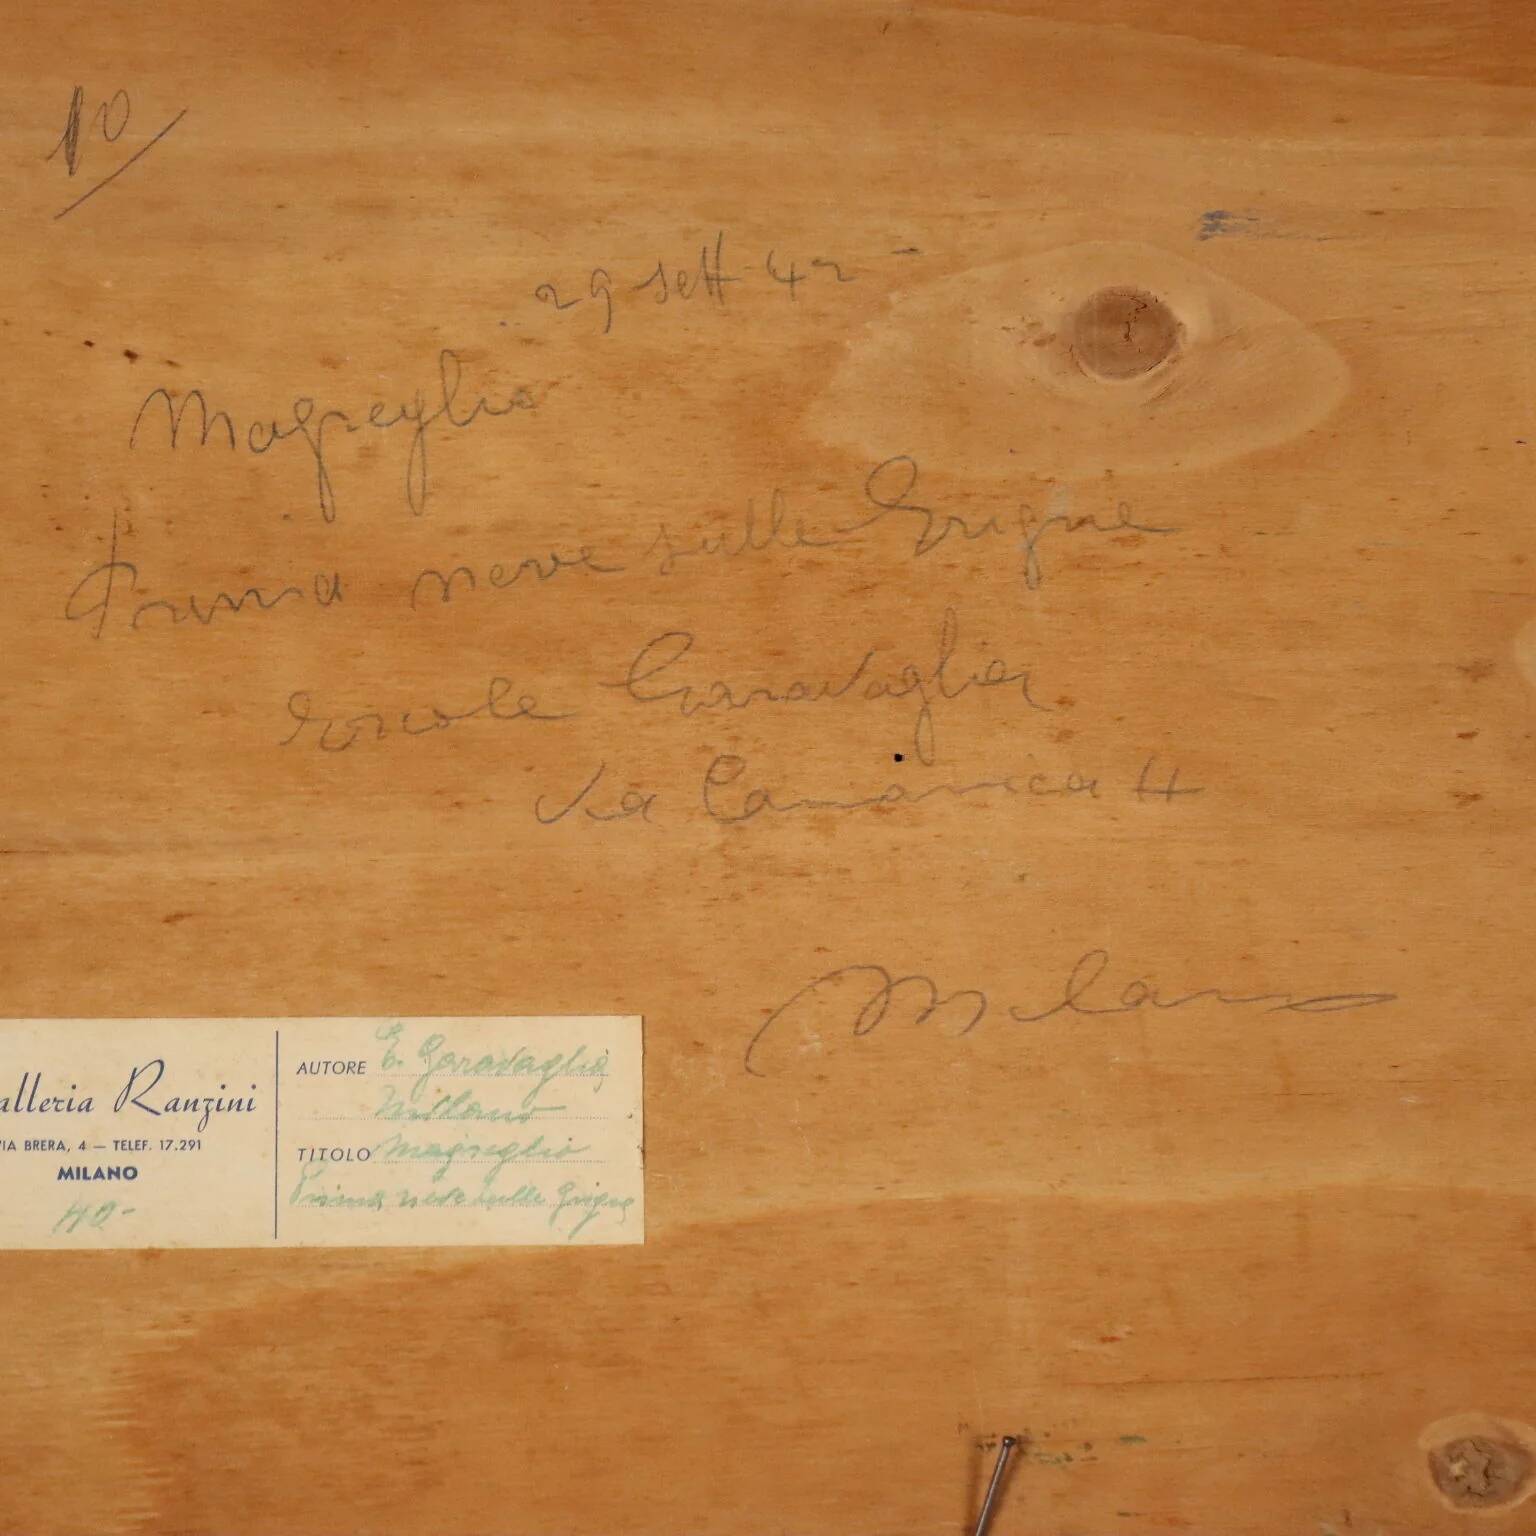 10
29 sett. 42 -
Magreglio
Prima neve sulle Grigne
Ercole Garavaglia
Via Canonica 4
Milano
alleria Ranzini
VIA BRERA, 4 — TELEF. 17.291
MILANO
AUTORE E. Garavaglia
Milano
TITOLO Magreglio
Prima neve sulle Grigne